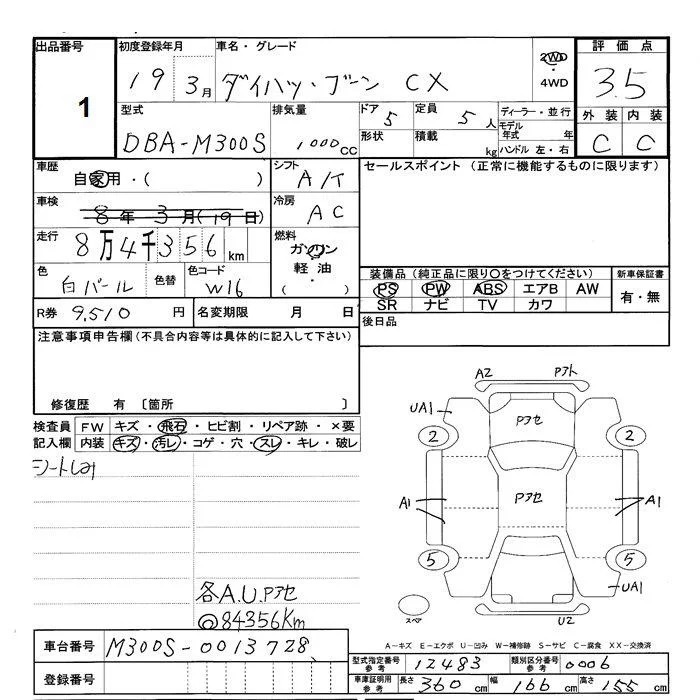 出品番号 1
初度登録年月 19 3月
車名・グレード ダイハツ・ブーン CX
2WD・4WD
評価点 3.5
外装 C 内装 C
型式 DBA-M300S
排気量 1,000cc
ドア 5
形状
定員 5人
積載 kg
ディーラー・並行
モデル年式 年
ハンドル 左・右
車歴 自家用・( )
シフト A/T
セールスポイント (正常に機能するものに限ります)
車検 8年3月(19日)
冷房 AC
走行 8万4千356km
燃料 ガソリン
軽油・
( )
色 白パール
色替
色コード W16
装備品 (純正品に限り○をつけてください)
新車保証書
PS PW ABS エアB AW
SR ナビ TV カワ
有・無
R券 9,510円
名変期限 月 日
後日品
注意事項申告欄 (不具合内容等は具体的に記入して下さい)
修復歴 有 〔箇所 〕
検査員記入欄
FW キズ・飛石・ヒビ割・リペア跡・×要
内装 キズ・汚レ・コゲ・穴・スレ・キレ・破レ
各A.U.Pアセ
◎84356Km
A2 Pアト
UA1
Pアセ
2 2
Pアセ
A1 A1
5 5
UA1
スペア
U2
A-キズ E-エクボ U-凹み W-補修跡 S-サビ C-腐食 XX-交換済
車台番号 M300S-0013728
登録番号
型式指定番号 参考 12483
類別区分番号 参考 0006
車庫証明用 参考 長さ 360cm 幅 166cm 高さ 155cm